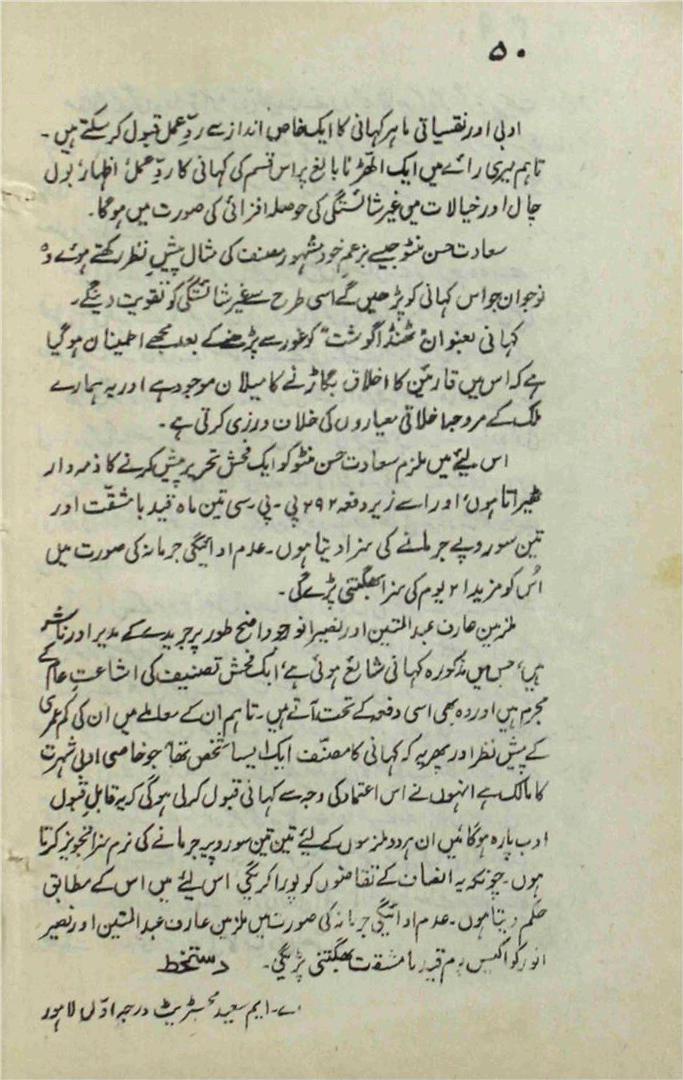 ۵۰
ادبی اور نفسیاتی ماہر کہانی کا ایک خاص انداز سے ردِّ عمل قبول کر سکتے ہیں۔
تاہم میری رائے میں ایک الّھڑ نا بالغ پر اس قسم کی کہانی کا ردِّ عمل، اظہار، بول
چال اور خیالات میں غیر شائستگی کی حوصلہ افزائی کی صورت میں ہوگا۔
سعادت حسن منٹو جیسے بزعمِ خود مشہور مصنف کی مثال پیشِ نظر رکھتے ہوئے وہ
نوجوان جو اس کہانی کو پڑھیں گے اسی طرح سے غیر شائستگی کو تقویت دینگے۔
کہانی بعنوان "ٹھنڈا گوشت" کو غور سے پڑھنے کے بعد مجھے اطمینان ہو گیا
ہے کہ اس میں قارئین کا اخلاق بگاڑنے کا میلان موجود ہے اور یہ ہمارے
ملک کے مروجہ اخلاقی معیاروں کی خلاف ورزی کرتی ہے۔
اس لیئے میں ملزم سعادت حسن منٹو کو ایک فحش تحریر پیش کرنے کا ذمہ دار
ٹھیراتا ہوں، اور اسے زیر دفعہ ۲۹۲ پی۔پی۔سی تین ماہ قید با مشقّت اور
تین سو روپے جرمانے کی سزا دیتا ہوں۔ عدم ادائیگی جرمانہ کی صورت میں
اُس کو مزید ۲۱ یوم کی سزا بھگتنی پڑے گی۔
ملزمین عارف عبدالمتین اور نصیر انور جو واضح طور پر جریدے کے مدیر اور ناشر
ہیں، جس میں مذکورہ کہانی شایع ہوئی ہے، ایک فحش تصنیف کی اشاعتِ عام کے
مجرم ہیں اور وہ بھی اسی دفعہ کے تحت آتے ہیں۔ تاہم ان کے معاملے میں ان کی کم عمری
کے پیش نظر اور پھر یہ کہ کہانی کا مصنّف ایک ایسا شخص تھا، جو خاصی ادبی شہرت
کا مالک ہے انہوں نے اس اعتماد کی وجہ سے کہانی قبول کر لی ہوگی کہ یہ قابلِ قبول
ادب پارہ ہوگا میں ان ہر دو ملزموں کے لیئے تین تین سو روپیہ جرمانے کی نرم سزا تجویز کرتا
ہوں۔ چونکہ یہ انصاف کے تقاضوں کو پورا کریگی اس لیئے میں اس کے مطابق
حکم دیتا ہوں۔ عدم ادائیگی جرمانہ کی صورت میں ملزمین عارف عبدالمتین اور نصیر
انور کو اکیس یوم قید با مشقت بھگتنی پڑیگی۔ دستخط
اے۔ ایم سعید مجسٹریٹ درجہ اوّل لاہور